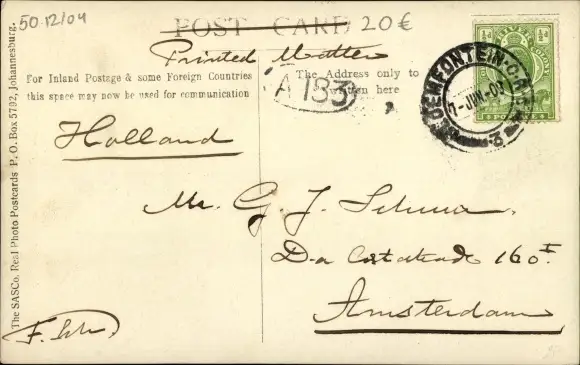 50.12/04
POST CARD 20€
Printed Matter
For Inland Postage & some Foreign Countries
this space may now be used for communication
The Address only to
written here
A 183
BLOEMFONTEIN·O.R.C.
-JUN-0
2
½d ½d
Holland
Mr. G. J.
160 I
Amsterdam
The SASCo. Real Photo Postcards P. O. Box 5792, Johannesburg.